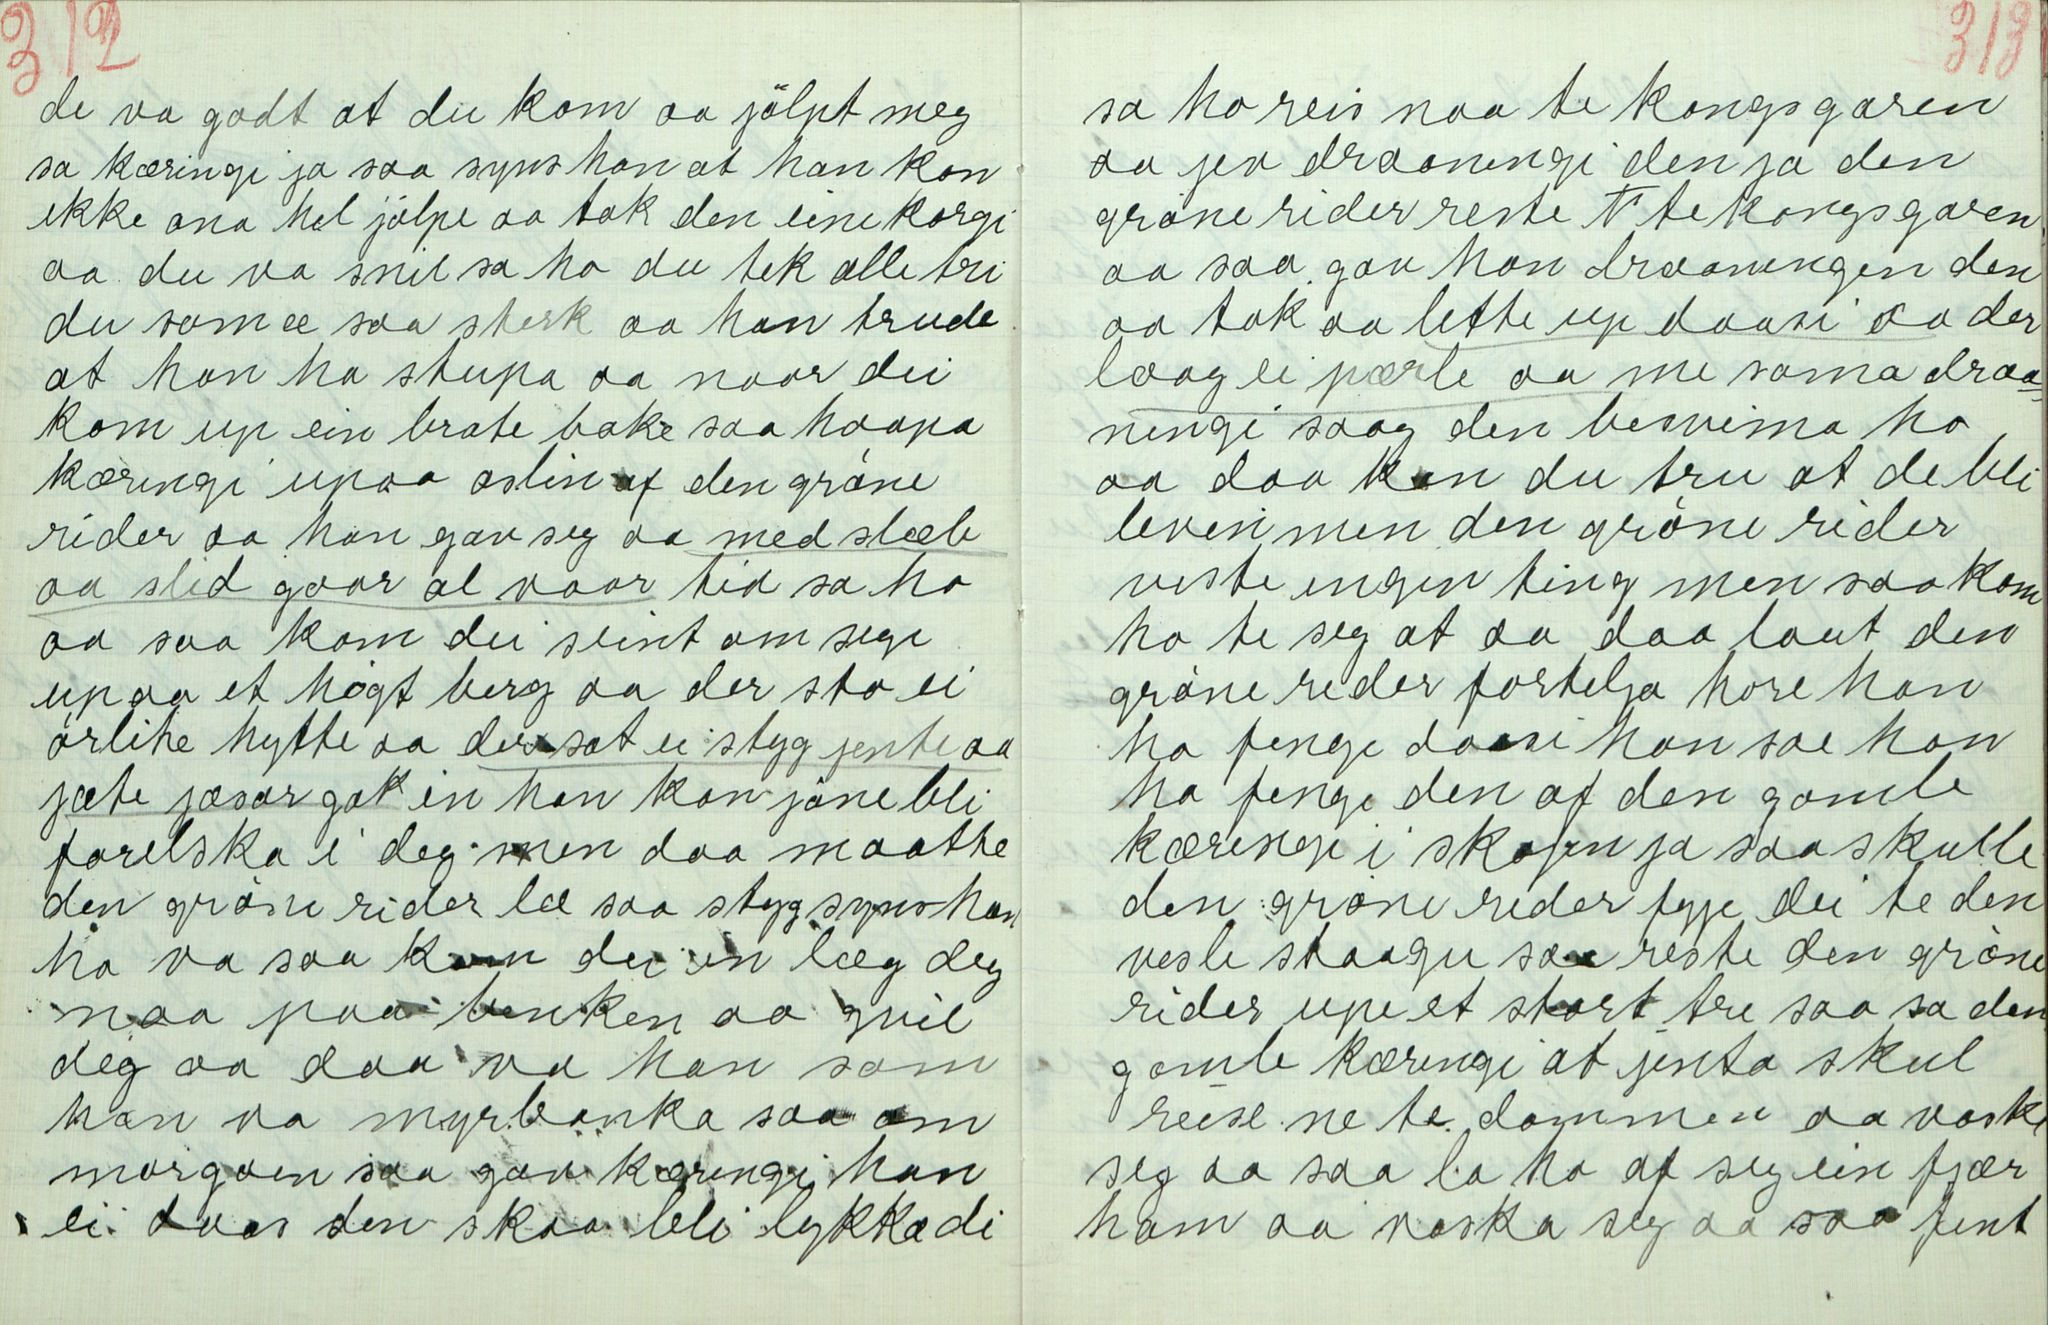 312
de va godt at du kom aa jölpt meg
sa kæringi ja saa syns han at han kan
ekke ana hel jölpe aa tok den eine korgi
aa du va snil sa ho du tek alle tri
du som ee saa sterk aa han trude
at han ha stupa aa naar dei
kom up ein brate bake saa haapa
kæringi upaa aslin af den gröne
rider aa han gav seg aa med slæb
aa slid gaar al vaar tid sa ho
aa saa kom dei seint om sege
upaa et högt berg aa der sto ei
örlite hytte aa der sat ei styg jente aa
jæte jæsar gak in han kan jöne bli
forelska i deg men daa maatte
den gröne rider læ saa styg syns han
ho va saa kom du in læg deg
naa paa benken aa qvil
deg aa daa va han som
han va myrbanka saa om
morgoen saa gav kæringi han
ei daas den skaa bli lykka di
313
sa ho reis naa te kongsgaren
aa jev draaningi den ja den
gröne rider reste te kongsgaren
aa saa gav han draaningen den
aa tok aa lette up daasi aa der
laag ei pærle aa me sama draa-
ningi saag den besvima ho
aa daa kan du tru at de bli
leven men den gröne rider
viste ingen ting men saa kom
ho te seg at aa daa laut den
gröne rider fortelja hore han
ha fenge daasi han sae han
ha fenge den af den gamle
kæringi i skogen ja saa skulle
den gröne rider fyje dei te den
vesle staagu saa reste den gröne
rider upi et stort tre saa sa den
gamle kæringi at jenta skul
reise ne te dammen aa vaske
seg aa saa la ho af seg ein fjær
ham aa vaska seg aa saa fint